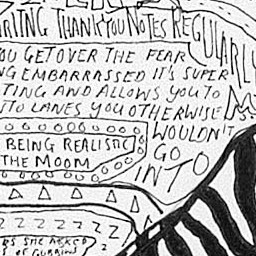 RITING THANK YOU NOTES REGULARLY
OU GET OVER THE FEAR
NG EMBARRASSED IT'S SUPER
TING AND ALLOWS YOU TO
TO LANES YOU OTHERWISE
WOULDN'T
GO
INTO
BEING REALISTIC
THE MOOM
SHE ASKED
OF